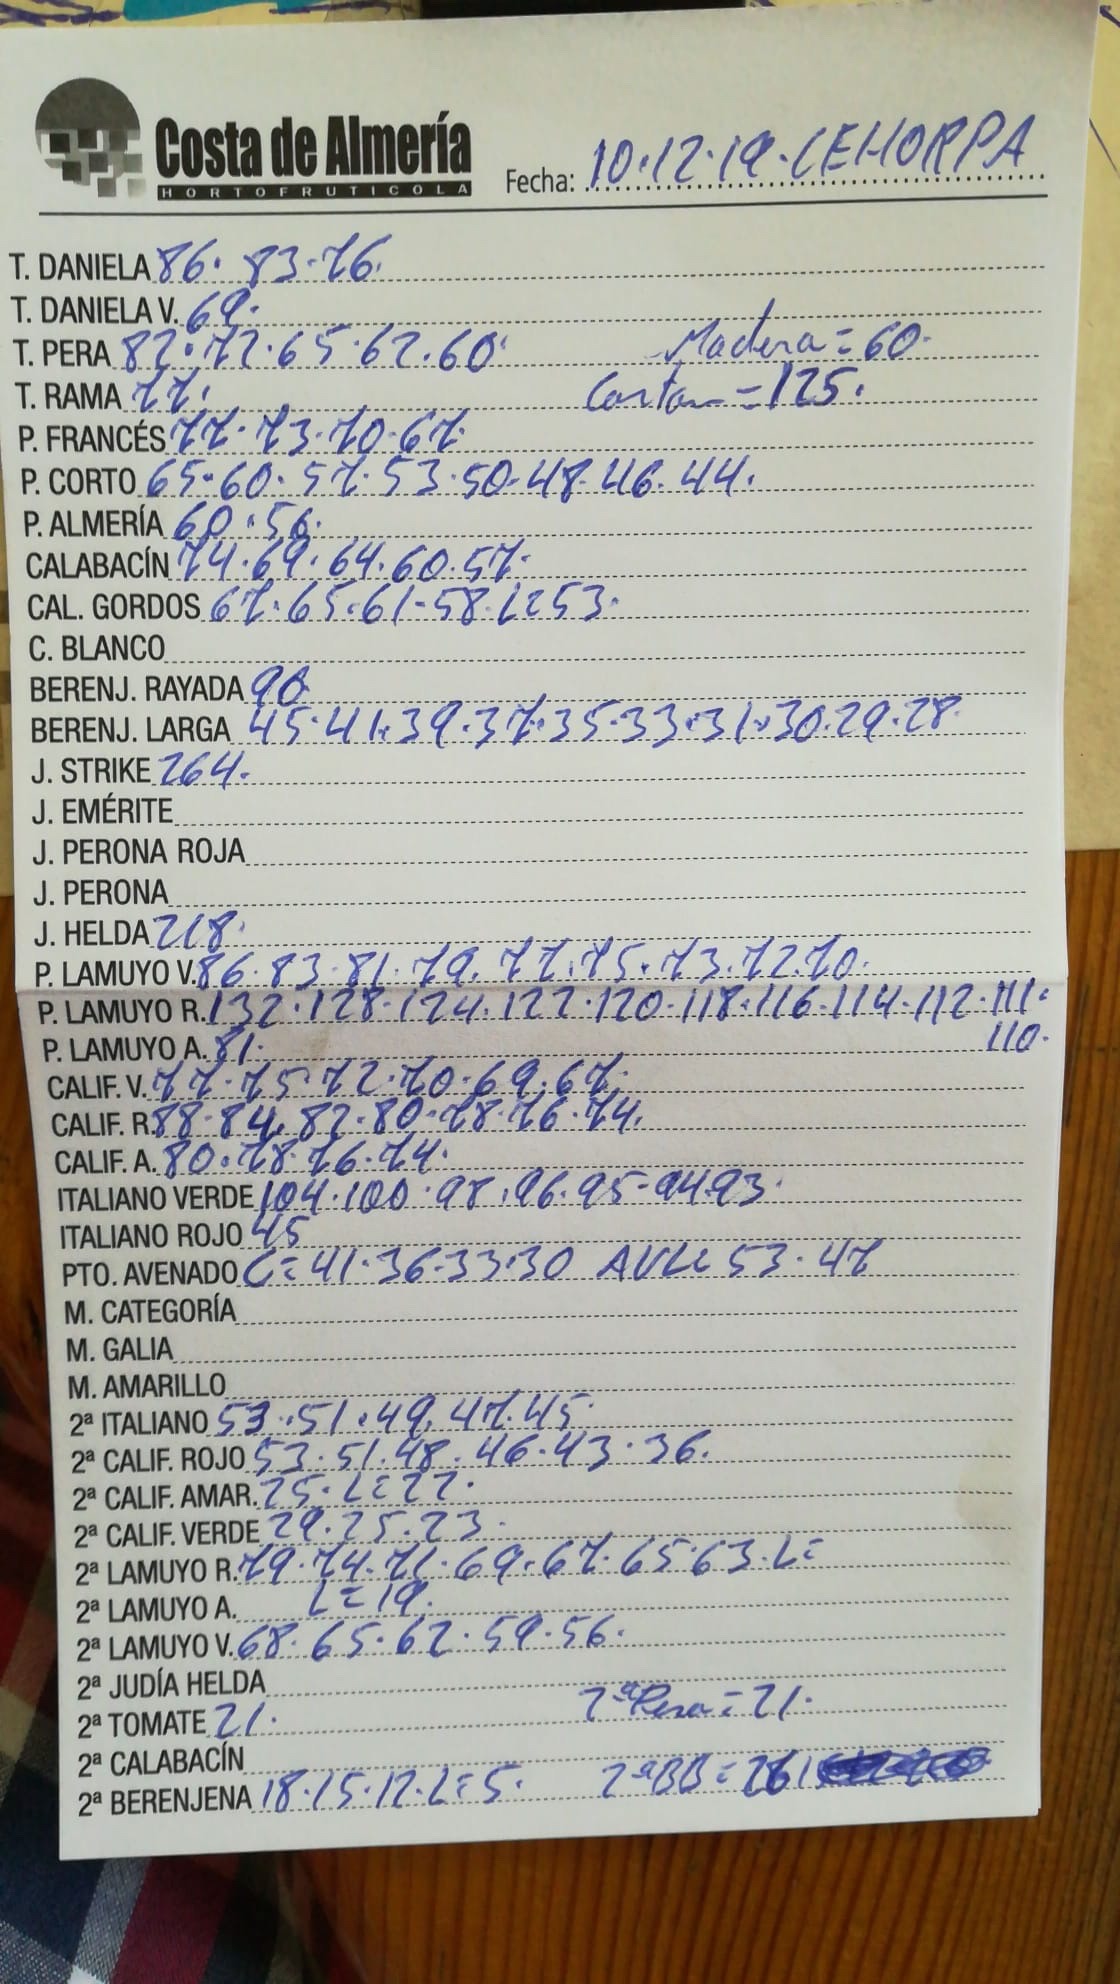 Costa de Almería
HORTOFRUTICOLA
Fecha: 10.12.19. CEHORPA
T. DANIELA 86. 83.76.
T. DANIELA V. 69.
T. PERA 82.72.65.62.60. Madera=60.
T. RAMA 77. Carton=125.
P. FRANCÉS 77.73.70.67.
P. CORTO 65.60.57.53.50.48.46.44.
P. ALMERÍA 60.56.
CALABACÍN 74.69.64.60.57.
CAL. GORDOS 67.65.61-58.L=53.
C. BLANCO
BERENJ. RAYADA 90
BERENJ. LARGA 45.41.39.37.35.33.31.30.29.28.
J. STRIKE 264.
J. EMÉRITE
J. PERONA ROJA
J. PERONA
J. HELDA 218.
P. LAMUYO V. 86.83.81.79.77.75.73.72.70.
P. LAMUYO R. 132.128.124.122.120.118.116.114.112.111.
110.
P. LAMUYO A. 81.
CALIF. V. 77.75.72.70.69.67.
CALIF. R. 88.84.82.80.78.76.74.
CALIF. A. 80.78.76.74.
ITALIANO VERDE 104.100.98.96.95-94.93.
ITALIANO ROJO 45
PTO. AVENADO C=41.36-33.30 53.47
M. CATEGORÍA
M. GALIA
M. AMARILLO
2ª ITALIANO 53.51.49.47.45.
2ª CALIF. ROJO 53.51.48.46.43.36.
2ª CALIF. AMAR. 25.L=22.
2ª CALIF. VERDE 29.25.23.
2ª LAMUYO R. 79.74.71.69.67.65.63.L=
2ª LAMUYO A. L=19.
2ª LAMUYO V. 68.65.62.59.56.
2ª JUDÍA HELDA
2ª TOMATE 21. 2ªPera=21.
2ª CALABACÍN
2ª BERENJENA 18.15.12.L=5. 2ªBB=